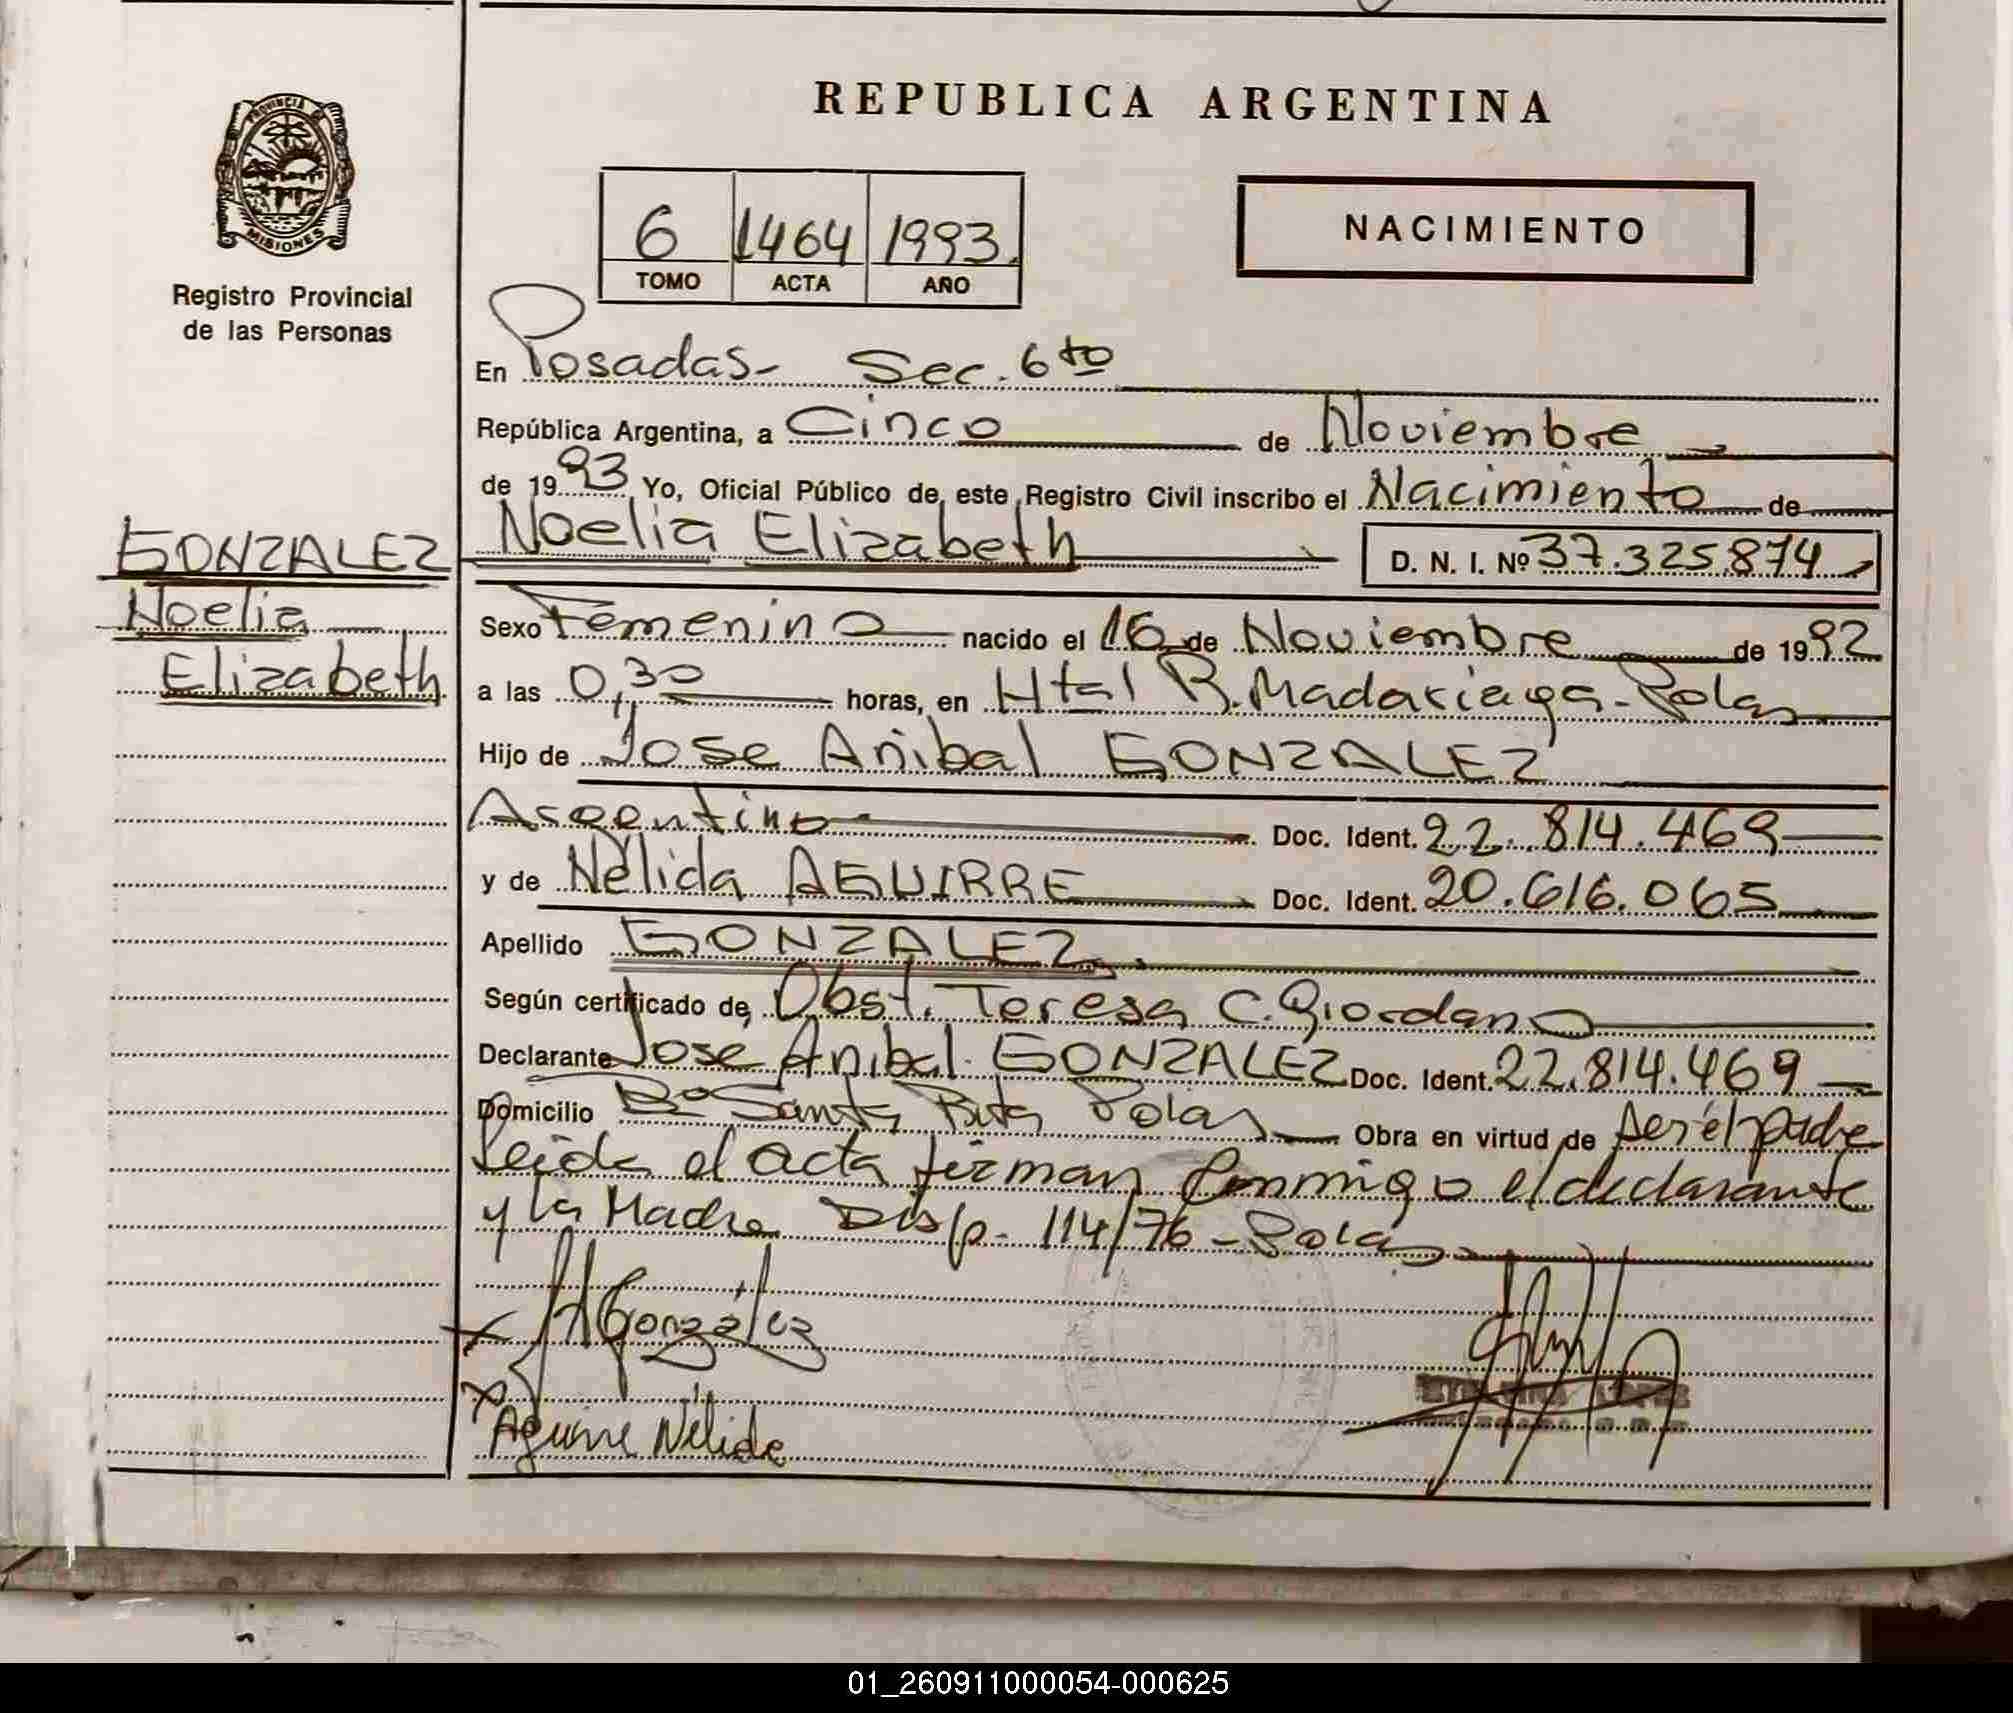 REPUBLICA ARGENTINA
PROVINCIA
MISIONES
Registro Provincial
de las Personas
6 1464 1993
TOMO ACTA AÑO
NACIMIENTO
En Posadas- Sec. 6to
República Argentina, a Cinco de Noviembre
de 1993 Yo, Oficial Público de este Registro Civil inscribo el Nacimiento de
GONZALEZ
Noelia
Elizabeth
Noelia Elizabeth D. N. I. Nº 37.325.874
Sexo Femenino nacido el 16 de Noviembre de 1992
a las 0,30 horas, en Htal R. Madariaga-Pdas
Hijo de Jose Anibal GONZALEZ
Argentino Doc. Ident. 22.814.469
y de Nélida AGUIRRE Doc. Ident. 20.616.065
Apellido GONZALEZ
Según certificado de Obst. Teresa C. Giordano
Declarante Jose Anibal GONZALEZ Doc. Ident. 22.814.469
Domicilio Bº Santa Rita Pdas Obra en virtud de ser el padre
Leida el acta firman conmigo el declarante
y la Madre Disp. 114/76 - Pdas
González
Aguirre Nélida
01_260911000054-000625